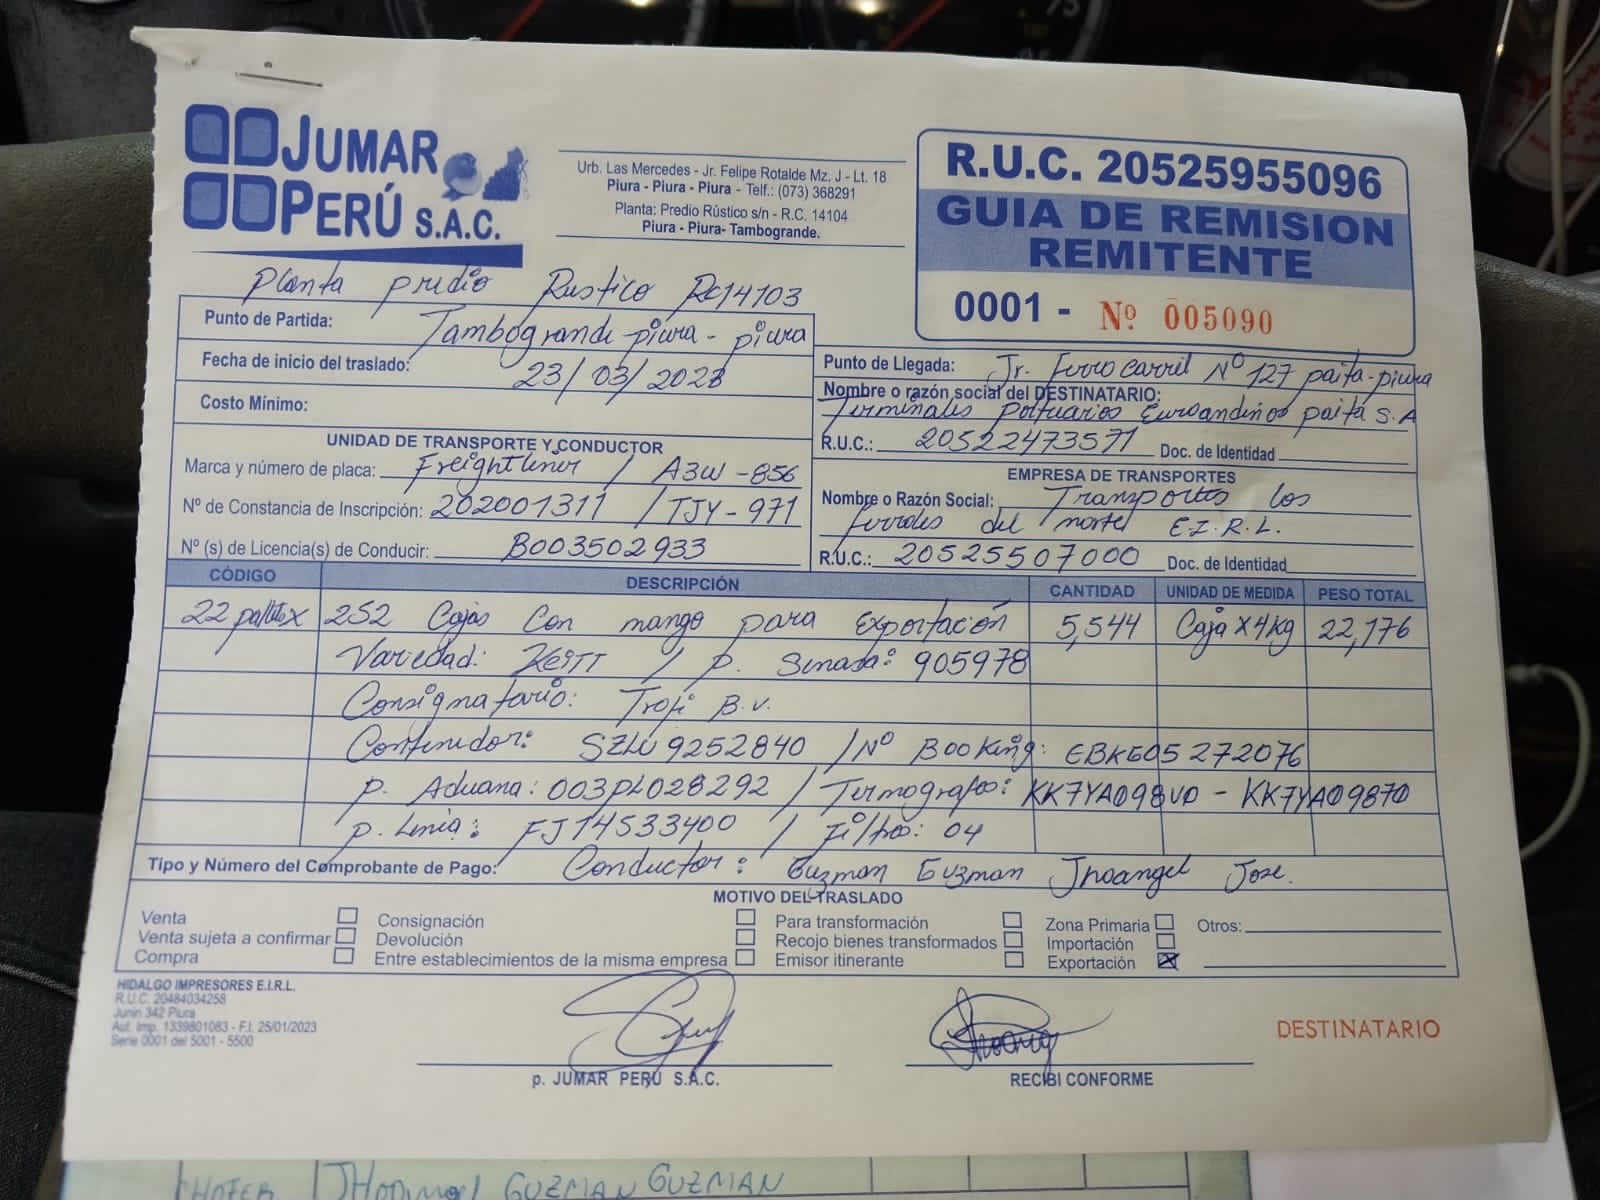 JUMAR
PERÚ S.A.C.
Urb. Las Mercedes - Jr. Felipe Rotalde Mz. J - Lt. 18
Piura - Piura - Piura - Telf.: (073) 368291
Planta: Predio Rústico s/n - R.C. 14104
Piura - Piura- Tambogrande.
R.U.C. 20525955096
GUIA DE REMISION
REMITENTE
0001 - Nº 005090
Planta predio Rustico Rc14103
Punto de Partida: Tambogrande-piura - piura
Fecha de inicio del traslado: 23/03/2023
Costo Mínimo:
Punto de Llegada: Jr. Ferro carril Nº 127 paita-piura
Nombre o razón social del DESTINATARIO:
Terminales portuarios Euroandinos paita S.A
R.U.C.: 20522473571 Doc. de Identidad
UNIDAD DE TRANSPORTE Y CONDUCTOR
Marca y número de placa: Freightliner / A3W-856
Nº de Constancia de Inscripción: 202001311 / TJY-971
Nº (s) de Licencia(s) de Conducir: B003502933
EMPRESA DE TRANSPORTES
Nombre o Razón Social: Transportes los
ferroles del norte E.I.R.L.
R.U.C.: 20525507000 Doc. de Identidad
CÓDIGO DESCRIPCIÓN CANTIDAD UNIDAD DE MEDIDA PESO TOTAL
22 palletsx 252 Cajas Con mango para Exportación 5,544 Caja x 4kg 22,176
Variedad: Keitt / p. Senasa: 905978
Consignatario: Trofi B.v.
Contenedor: SZLU9252840 / Nº Booking: EBKG05272076
p. Aduana: 003PL028292 / Termografos: KK7YA098U0 - KK7YA09870
p. Linia: FJ14533400 / Filtro: 04
Tipo y Número del Comprobante de Pago: Conductor: Guzman Guzman Jhoangel Jose.
MOTIVO DEL TRASLADO
Venta Consignación Para transformación Zona Primaria Otros:
Venta sujeta a confirmar Devolución Recojo bienes transformados Importación
Compra Entre establecimientos de la misma empresa Emisor itinerante Exportación X
HIDALGO IMPRESORES E.I.R.L.
R.U.C. 20484034258
Junin 342 Piura
Aut. Imp. 1339801083 - F.I. 25/01/2023
Serie 0001 del 5001 - 5500
p. JUMAR PERÚ S.A.C.
RECIBI CONFORME
DESTINATARIO
CHOFER JHOANGEL GUZMAN GUZMAN